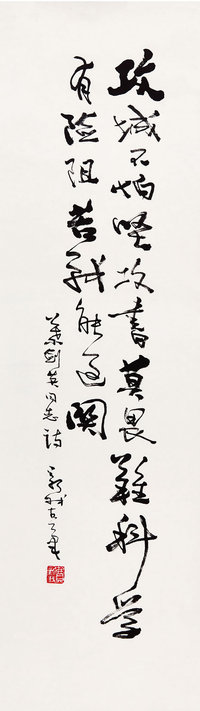 攻城不怕坚攻書莫畏難科学
有险阻苦战能过関
葉剑英同志诗